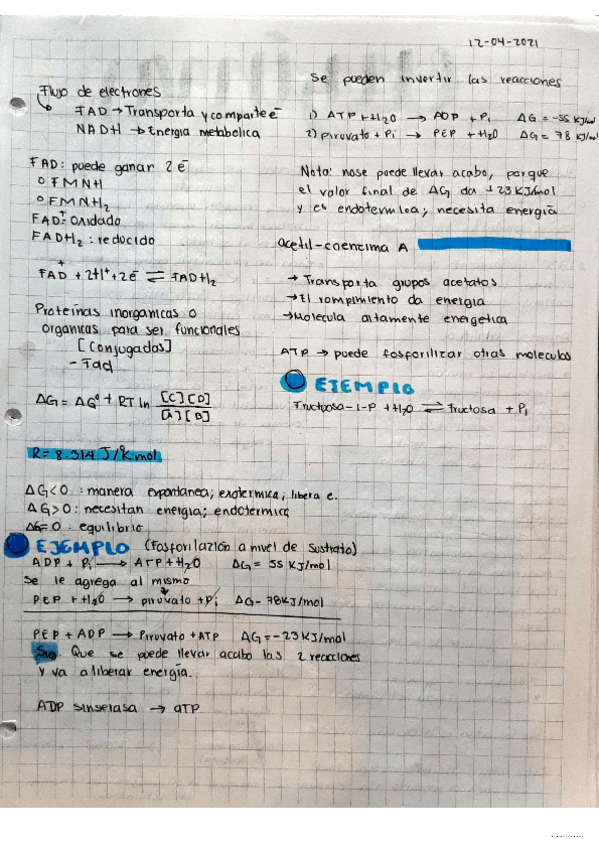 12-04-2021
Flujo de electrones
FAD → Transporta y comparte ē
NADH → Energia metabolica
FAD: puede ganar 2 ē
° FMNH
° FMNH₂
FAD⁺: oxidado
FADH₂: reducido
FAD⁺ + 2H⁺ + 2ē ⇌ FADH₂
Proteínas inorganicas o
organicas para ser funcionales
[Conjugadas]
- Fad
ΔG = ΔG°' + RT ln [C][D] / [A][B]
R= 8.314 J/°K mol
ΔG<0 : manera expontanea; exotermica, libera e.
ΔG>0 : necesitan energia; endotermica
ΔG=0 : equilibrio
EJEMPLO (Fosforilazión a nivel de sustrato)
ADP + Pi → ATP + H₂O ΔG = 55 KJ/mol
Se le agrega al mismo
PEP + H₂O → piruvato + Pi ΔG - 78 KJ/mol
PEP + ADP → Piruvato + ATP ΔG = -23 KJ/mol
Que se puede llevar acabo las 2 reacciones
y va a liberar energía.
ADP sinselasa → ATP
Se pueden invertir las reacciones
1) ATP + H₂O → ADP + Pi ΔG = -55 KJ/mol
2) piruvato + Pi → PEP + H₂O ΔG = 78 KJ/mol
Nota: nose puede llevar acabo, porque
el valor final de ΔG da +23 KJ/mol
y es endotermica; necesita energía
acetil-coenzima A
→ Transporta grupos acetatos
→ El rompimiento da energia
→ Molecula altamente energetica
ATP → puede fosforilizar otras moleculas
EJEMPLO
Fructuosa-1-P + H₂O ⇌ fructosa + Pi